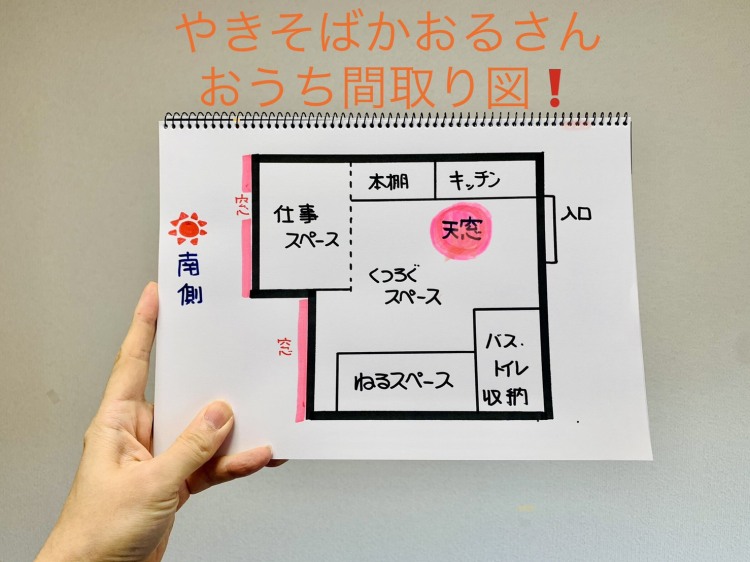 やきそばかおるさん
おうち間取り図❗
本棚
キッチン
窓
仕事
スペース
天窓
入口
南側
くつろぐ
スペース
窓
ねるスペース
バス・
トイレ
収納